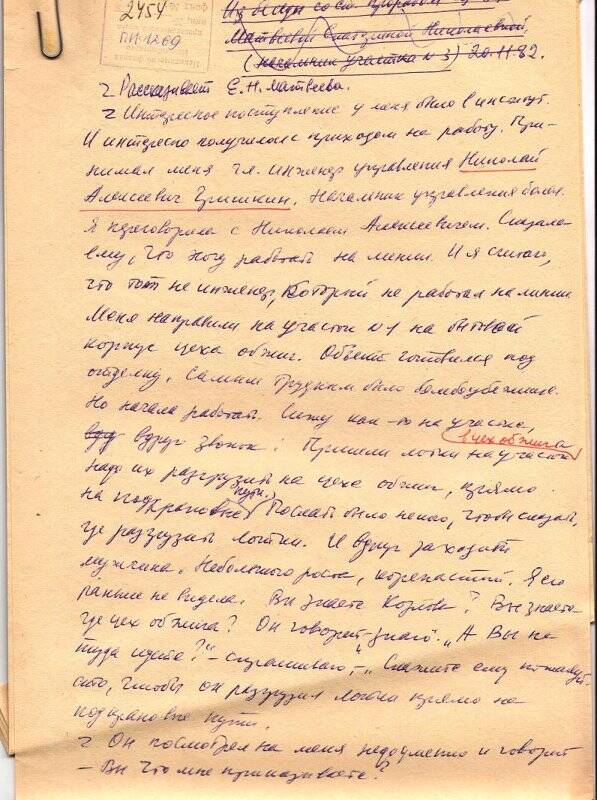 2454
ПИ-1269
Из беседы со ст. прорабом
Матвеевой Екатериной Николаевной,
(начальник участка №3) 20.11.82.
Рассказывает Е.Н. Матвеева.
Интересное поступление у меня было в институт.
И интересно получилось с приходом на работу. При-
нимал меня гл. инженер управления Николай
Алексеевич Гришкин. Начальник управления болел.
Я переговорила с Николаем Алексеевичем. Сказала
ему, что хочу работать на линии. И я считаю,
что тот не инженер, который не работал на линии.
Меня направили на участок №1 на бытовой
корпус цеха обжиг. Объект готовился под
отделку. Самым трудным было бомбоубежище.
Но начала работать. Сижу как-то на участке,
в цех обжига
вдруг звонок: Пришли лотки на участок
надо их разгрузить на цеха обжиг, прямо
на подкрановые пути. Послать было некого, чтобы сказать,
где разгрузить лотки. И вдруг заходит
мужчина. Небольшого роста, коренастый. Я его
раньше не видела. Вы знаете Козлова? Вы знаете
где цех обжига? Он говорит - знаю. "А Вы не
туда идете?" - спрашиваю, - "Скажите ему пожалуй-
ста, чтобы он разгрузил лотки прямо на
подкрановые пути.
Он посмотрел на меня недоуменно и говорит
- Вы что мне приказываете?